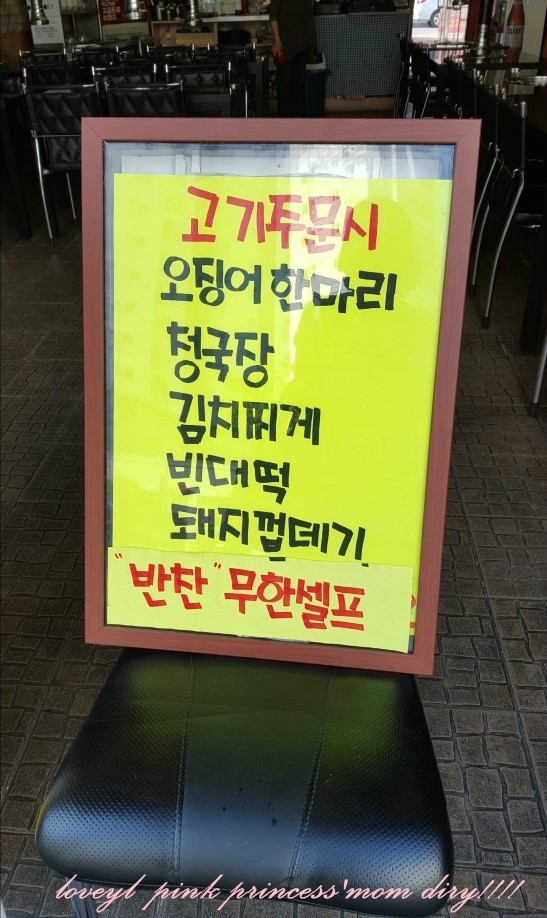 고기주문시
오징어 한마리
청국장
김치찌게
빈대떡
돼지껍데기
"반찬" 무한셀프
loveyl pink princess'mom diry!!!!